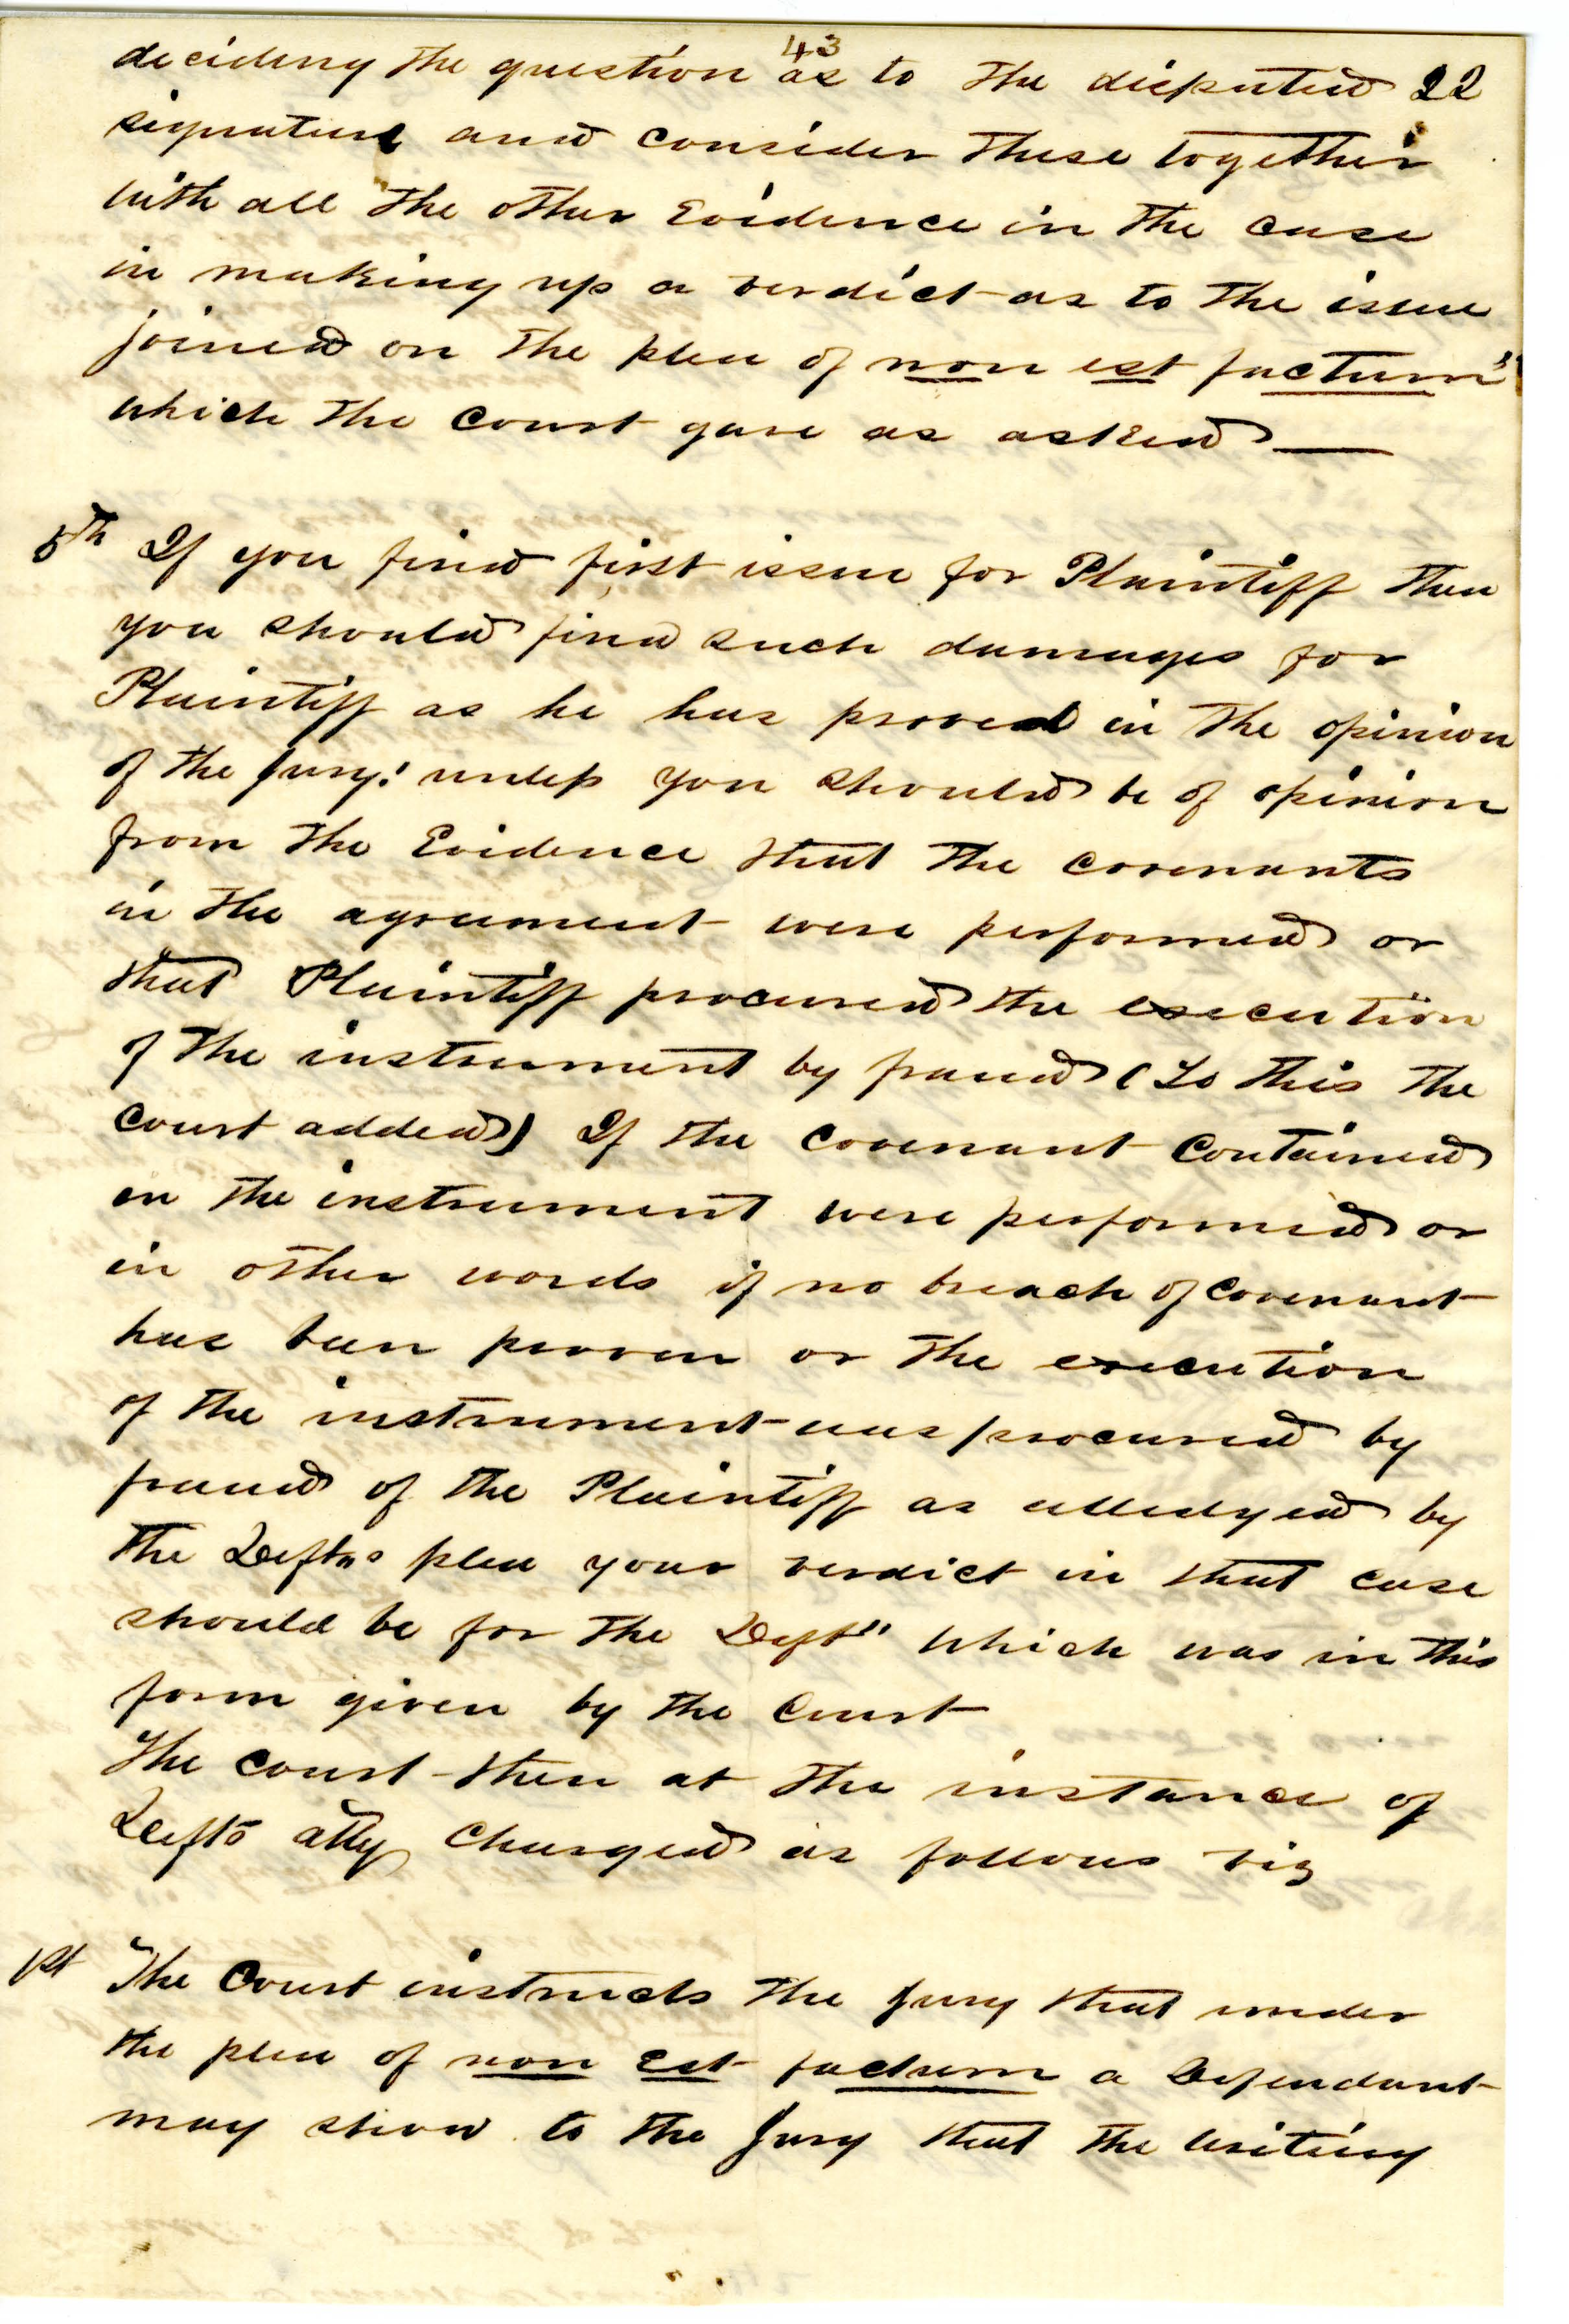 43
deciding the question as to the disputed 22
signature and consider these together
with all the other Evidence in the case
in making up a verdict as to the issue
joined on the plea of non est factum"
which the Court gave as asked —
5th If you find first issue for Plaintiff then
you should find such damages for
Plaintiff as he has proved in the opinion
of the Jury: unless you should be of opinion
from the Evidence that the covenants
in the agreement were performed or
that Plaintiff procured the execution
of the instrument by fraud (To this the
court added) If the Covenant Contained
in the instrument were performed or
in other words if no breach of Covenant
has been proven or the execution
of the instrument was procured by
fraud of the Plaintiff as alledged by
the Defts plea your verdict in that case
should be for the Deft" which was in this
form given by the Court
The court then at the instance of
Defts atty Charged as follows viz
1st "The Court instructs the Jury that under
the plea of non Est factum a Defendant
may show to the Jury that the writing